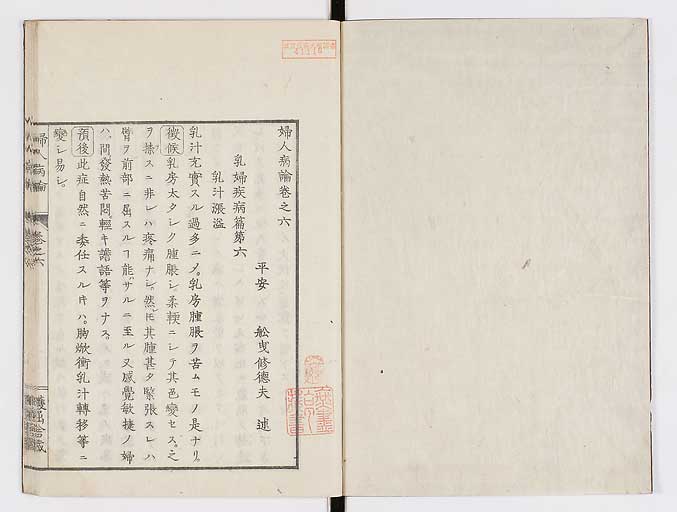 婦人病論卷之六
平安 舩曳修德夫 述
乳婦疾病篇第六
乳汁漲溢
乳汁充實スル過多ニ乄。乳房腫脹ヲ苦ムモノ是ナリ。
徴候乳房太タシク腫脹シ柔輭ニシテ其色變セス。之
ヲ捺スニ非レハ疼痛ナシ。然𪜈其腫甚タ緊張スレハ
臂ヲ前部ニ屈スルヿ能ハサルニ至ル又感覺敏捷ノ婦
ハ、間發熱苦悶輕キ譫語等ヲナス。
預後此症自然ニ委任スルキハ。胸焮衝乳汁轉移等ニ
變シ易シ。
婦人病論
卷之六